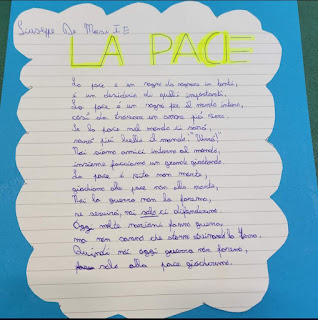 Giuseppe De Masi I E
LA PACE
La pace è un sogno da sognare in tanti,
è un desiderio di quelli importanti.
La pace è un sogno per il mondo intero,
così da trovare un amore più vero.
Se la pace nel mondo ci sarà,
sarà più bello il mondo: "Urrà!"
Noi siamo amici intorno al mondo,
insieme facciamo un grande girotondo.
La pace è vita non morte,
giochiamo alla pace non alla morte,
Noi la guerra non la faremo,
ne servirà, noi solo ci difenderemo.
Oggi molte nazioni fanno guerra,
ma non sanno che stanno rovinando la Terra.
Quindi noi oggi guerra non faremo,
solo alla pace giocheremo.